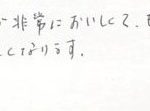 非常においしくて、
くなります。